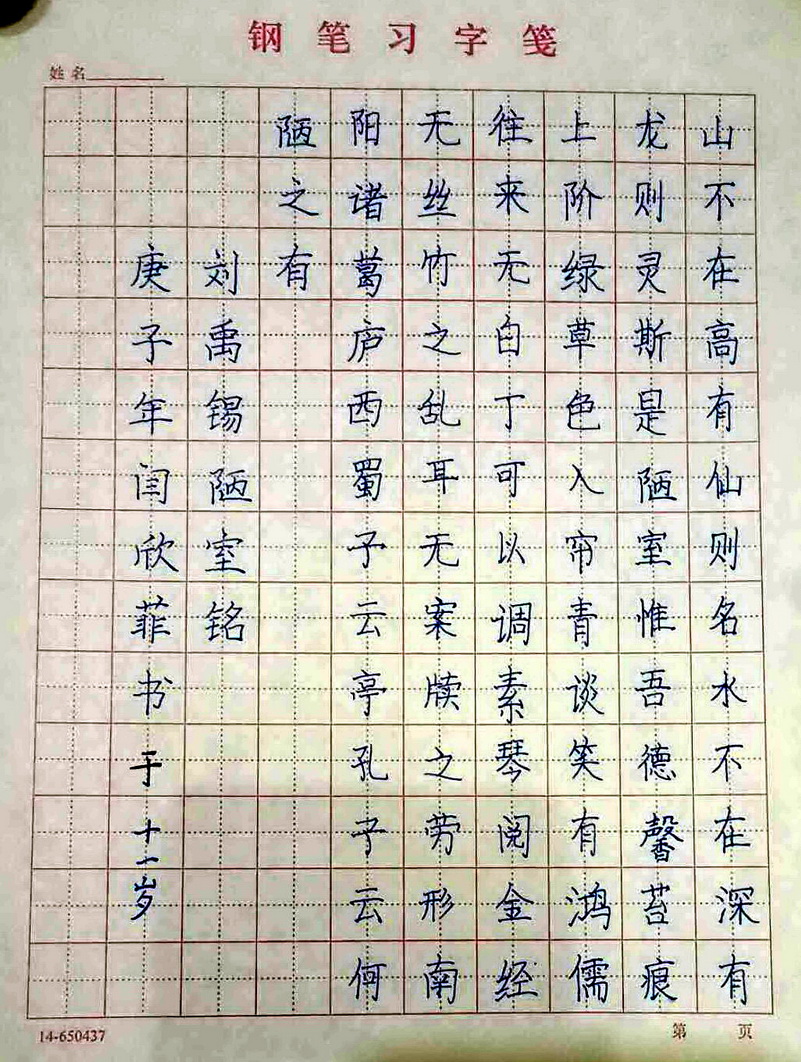 钢笔习字笺
姓名
山不在高有仙则名水不在深有
龙则灵斯是陋室惟吾德馨苔痕
上阶绿草色入帘青谈笑有鸿儒
往来无白丁可以调素琴阅金经
无丝竹之乱耳无案牍之劳形南
阳诸葛庐西蜀子云亭孔子云何
陋之有
刘禹锡陋室铭
庚子年闫欣菲书于十一岁
14-650437
第 页